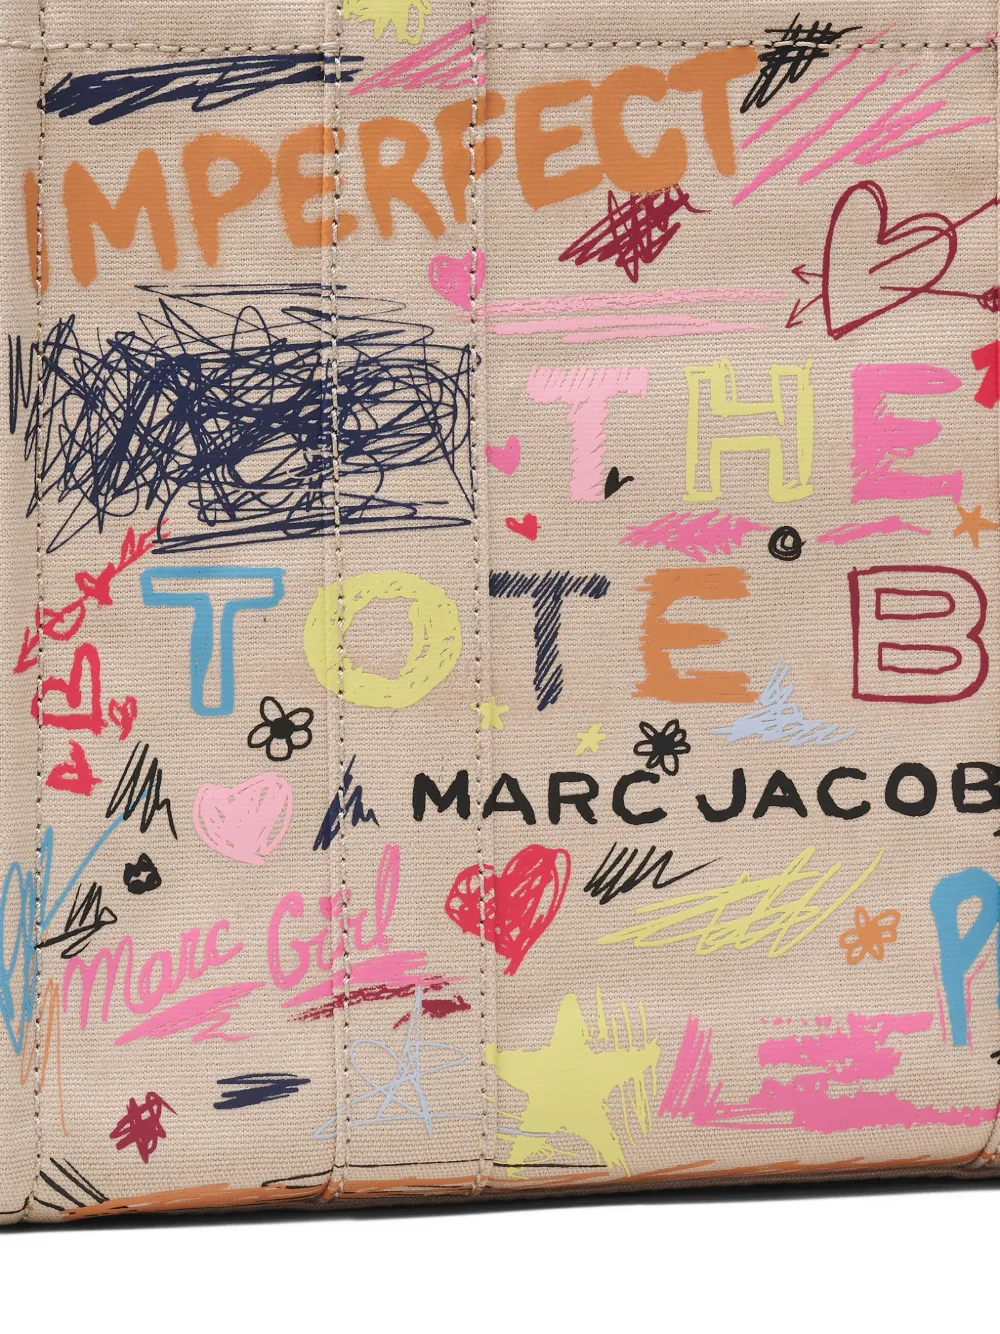 IMPERFECT
THE
TOTE B
MARC JACOB
Marc Girl